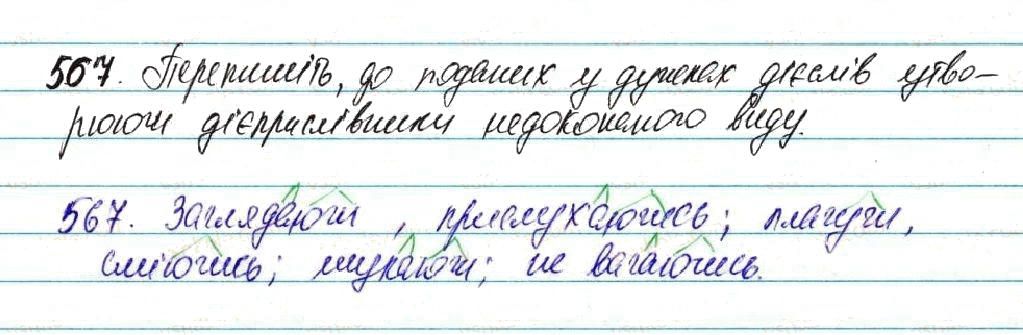 567. Перепишіть, до поданих у дужках дієслів утво-
рюючи дієприслівники недоконаного виду.
567. Заглядаючи, прислухаючись; плачучи,
сміючись; шукаючи; не вагаючись.